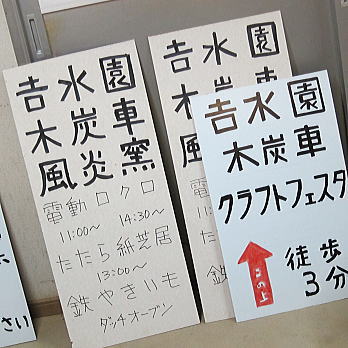 𠮷水園
木炭車
風炎窯
電動ロクロ
11:00〜 14:30〜
たたら紙芝居
13:00〜
鉄やきいも
ダッチオーブン
𠮷水園
木
風
鉄
𠮷水園
木炭車
クラフトフェスタ
この上
徒歩
3分
さい